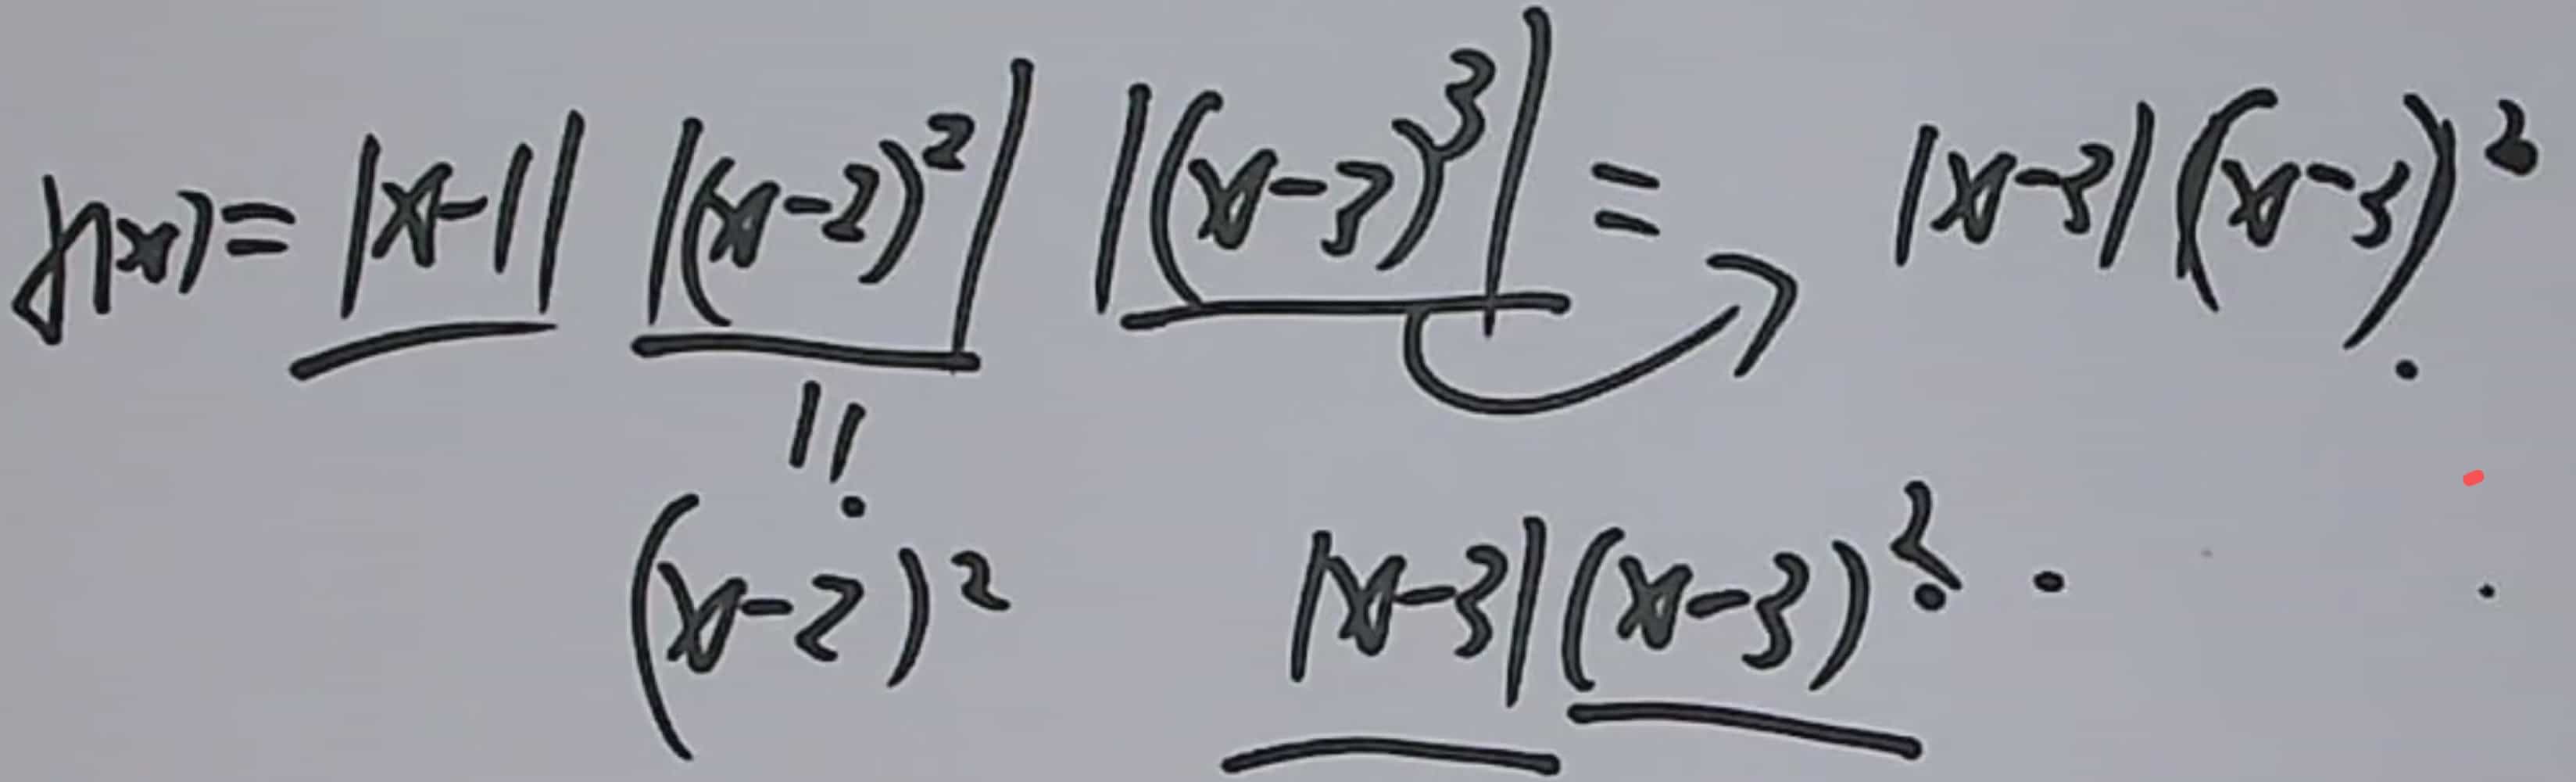 f(x) = |x-1| |(x-2)^2| |(x-3)^3| = |x-3| (x-3)^2
||
(x-2)^2 |x-3| (x-3)^2